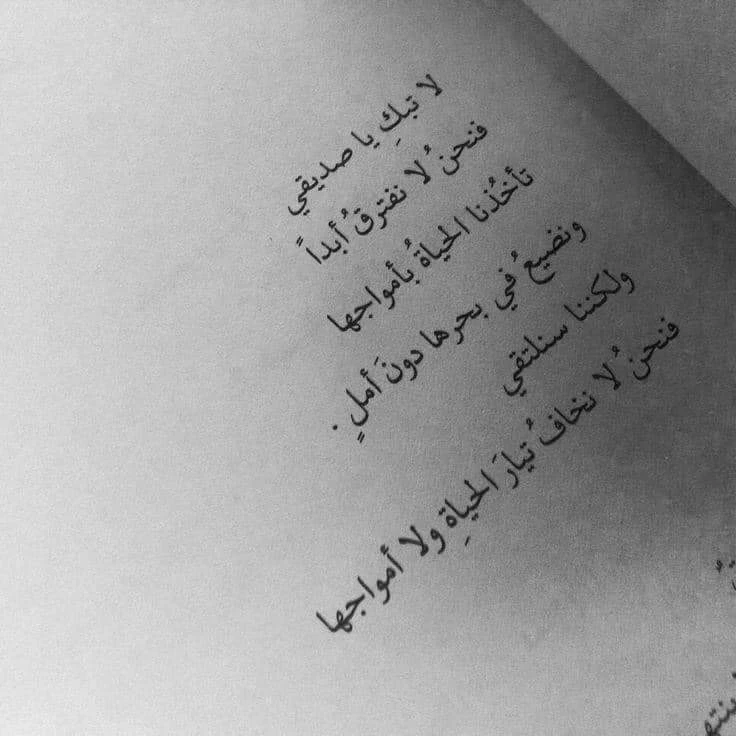 لا تبكِ يا صديقي
فنحنُ لا نفترقُ أبداً
تأخُذنا الحياةُ بأمواجها
ونضيعُ في بحرها دونَ أملٍ .
ولكننا سنلتقي
فنحنُ لا نخافُ تيارَ الحياةِ ولا أمواجها